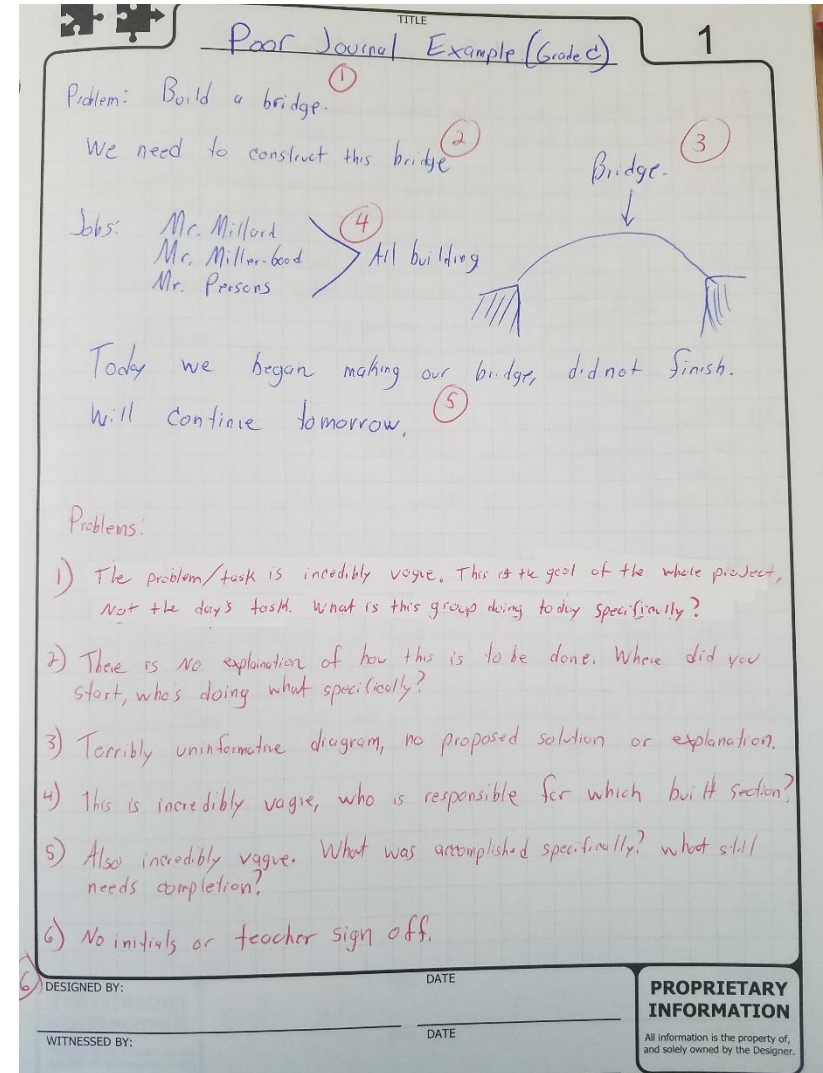 TITLE
Poor Journal Example (Grade C)
1
Problem: Build a bridge. ①
We need to construct this bridge ②
③
Bridge.
Jobs: Mr. Millard
Mr. Miller-Good
Mr. Persons
④
All building
Today we began making our bridge, did not finish.
Will continue tomorrow. ⑤
Problems:
1) The problem/task is incedibly vague. This is the goal of the whole project,
Not the day's task. What is this group doing today specifically?
2) There is NO explanation of how this is to be done. Where did you
start, who's doing what specifically?
3) Terribly uninformative diagram, no proposed solution or explanation.
4) This is incredibly vague, who is responsible for which built section?
5) Also incredibly vague. What was accomplished specifically? what still
needs completion?
6) No initials or teacher sign off.
6
DESIGNED BY:
DATE
WITNESSED BY:
DATE
PROPRIETARY
INFORMATION
All information is the property of,
and solely owned by the Designer.